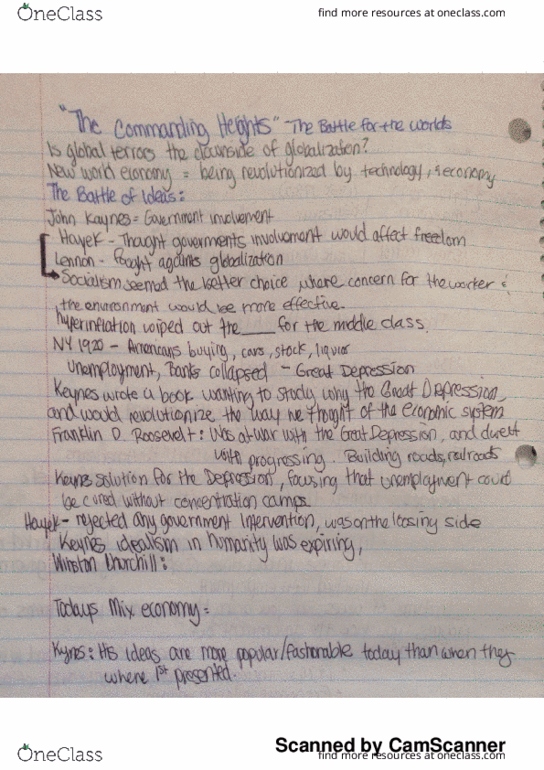 OneClass
find more resources at oneclass.com
"The Commanding Heights" The Battle for the worlds
Is global terrors the downside of globalization?
New world economy = being revolutionized by technology, & economy
The Battle of Ideas:
John Kaynes = Government involvement
Hayek - Thought goverments involvoment would affect freedom
Lennon - Fought againts globalization
Socialism seemed the better choice where concern for the worker &
the environment would be more effective.
hyperinflation wiped out the ____ for the middle class.
NY 1920 - Americans buying, cars, stock, liquor
Unemployment, Banks collapsed - Great Depression
Keynes wrote a book wanting to study why the Great Depression,
and would revolutionize the way we thought of the economic system
Franklin D. Roosevelt: Was at war with the Great Depression, and dwelt
with progressing. Building roads, railroads
Keynes solution for the Depression, focusing that unemployment could
be cured without concentration camps.
Hayek - rejected any government intervention, was on the loosing side
Keynes idealism in humanity was expiring,
Winston Churchill:
Todays Mix economy =
Kynes: His ideas are more popular/fashionable today than when they
where 1st presented.
Scanned by CamScanner
OneClass
find more resources at oneclass.com